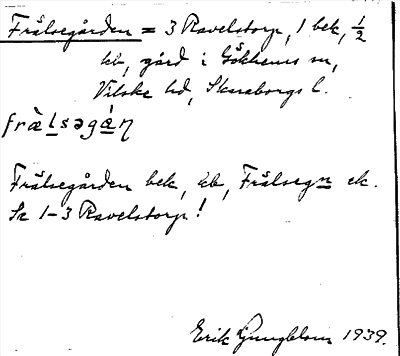 Frälsegården = 3 Ravelstorp, 1 bek, 1/2
kb, gård i Gökhems sn,
Vilske hd, Skaraborgs l.
fræ̀lsəgá̀ɳ
Frälsegården bek, kb, Frälsegn ek.
Se 1-3 Ravelstorp!
Erik Ljungblom 1939.